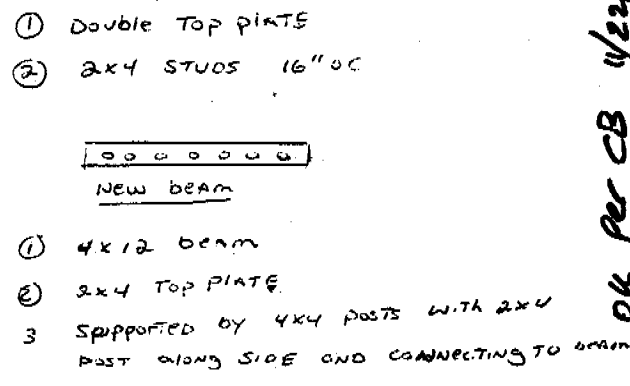 ① Double Top plATE
② 2x4 STUDS 16" OC
New beAm
① 4x12 beAm
② 2x4 Top PlATE
3 Supported by 4x4 posts with 2x4
post along SIDE AND CONNECTING TO beAm
OK per CB 11/22